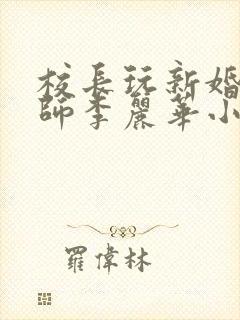 校長玩新婚
師李麗華小
羅偉林